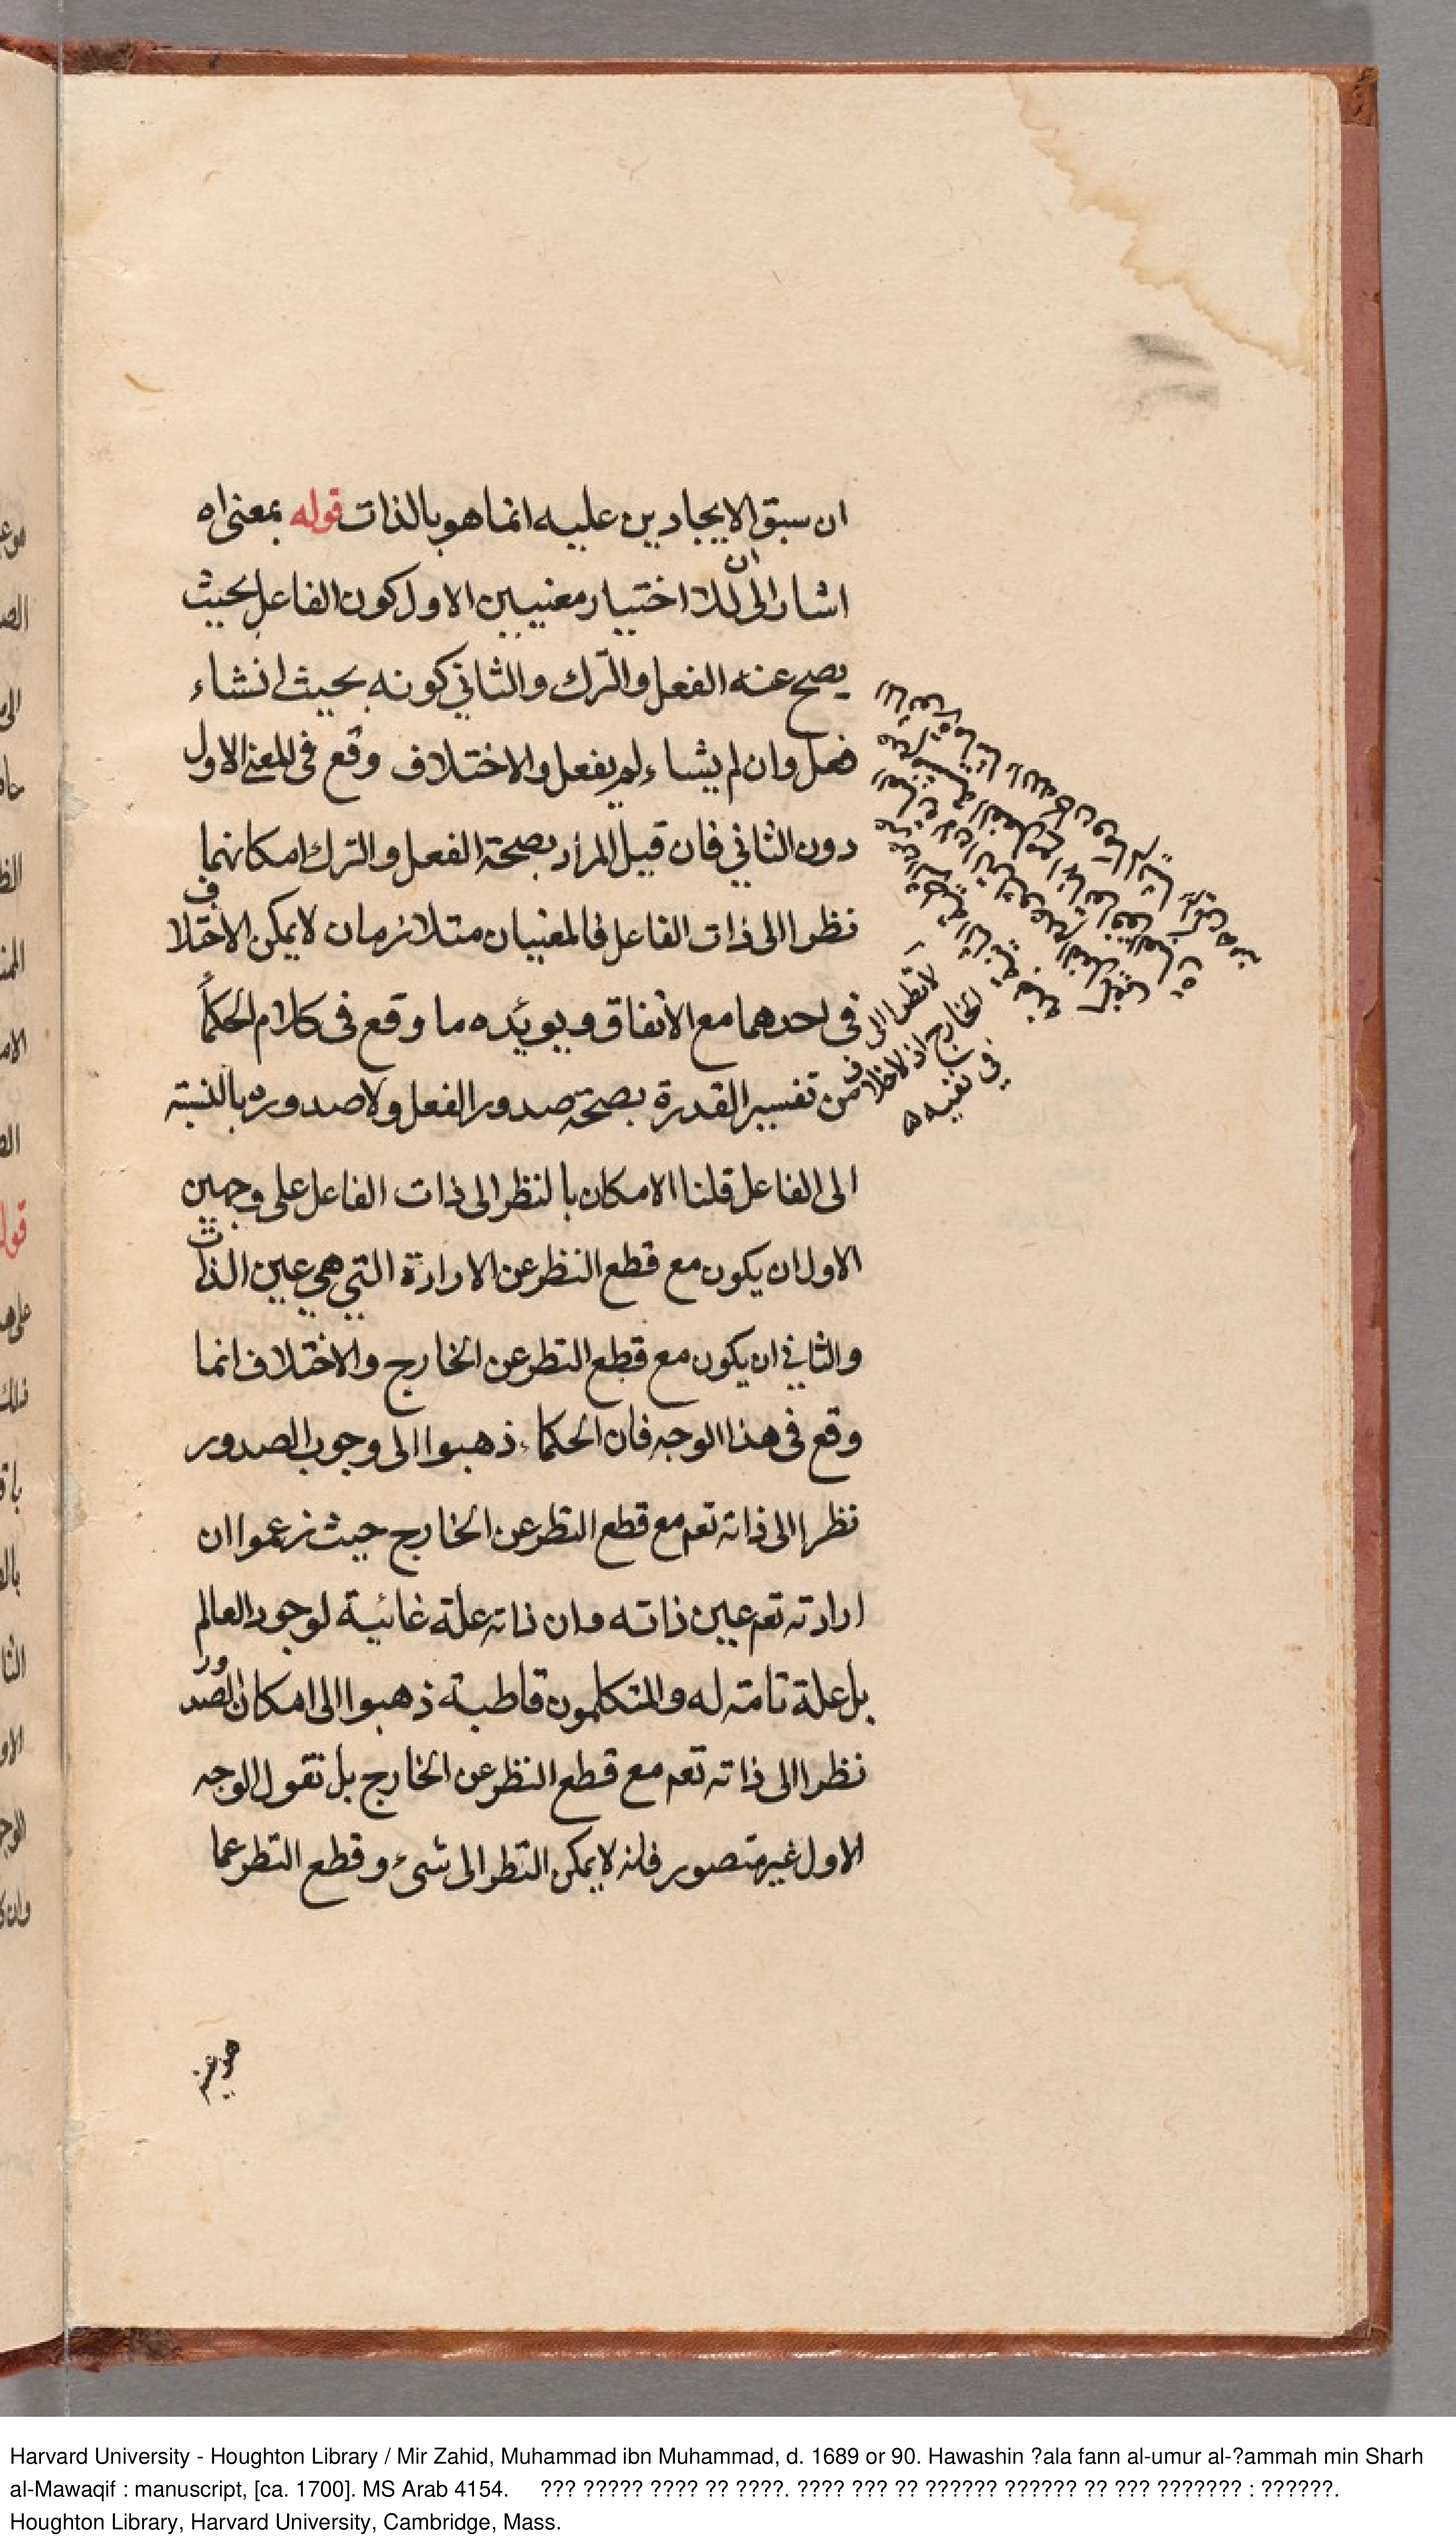 ان سبق الايجادين عليه انما هو بالذات قوله بمعنى اه
اشار الى ان للاختيار معنيين الاول كون الفاعل بحيث
يصح عنه الفعل والترك والثاني كونه بحيث انشاء
فعل وان لم يشاء لم يفعل والاختلاف وقع فى المعنى الاول
دون الثاني فان قيل المراد بصحة الفعل والترك امكانهما
نظرا الى ذات الفاعل فالمعنيان متلازمان لا يمكن الاختلاف
فى احدهما مع الاتفاق ويويده ما وقع فى كلام الحكما
من تفسير القدرة بصحة صدور الفعل ولا صدوره بالنسبته
الى الفاعل قلنا الامكان بالنظر الى ذات الفاعل على وجهين
الاول ان يكون مع قطع النظر عن الارادة التي هي عين الذات
والثاني ان يكون مع قطع النظر عن الخارج والاختلاف انما
وقع فى هذا الوجه فان الحكماء ذهبوا الى وجوب الصدور
نظرا الى ذاته تعم مع قطع النظر عن الخارج حيث زعموا ان
ارادته تعم عين ذاته وان ذاته علة غائية لوجود العالم
بل علة تامته له والمتكلمون قاطبة ذهبوا الى امكان الصدور
نظرا الى ذاته تعم مع قطع النظر عن الخارج بل نقول الوجه
الاول غير متصور فانه لا يمكن النظر الى شىء وقطع النظر عما
لا نظر الى
الخارج اذ لا خلاف
في نفيه
هو عينه
Harvard University - Houghton Library / Mir Zahid, Muhammad ibn Muhammad, d. 1689 or 90. Hawashin ?ala fann al-umur al-?ammah min Sharh
al-Mawaqif : manuscript, [ca. 1700]. MS Arab 4154. ??? ????? ???? ?? ????. ???? ??? ?? ?????? ?????? ?? ??? ??????? : ??????.
Houghton Library, Harvard University, Cambridge, Mass.